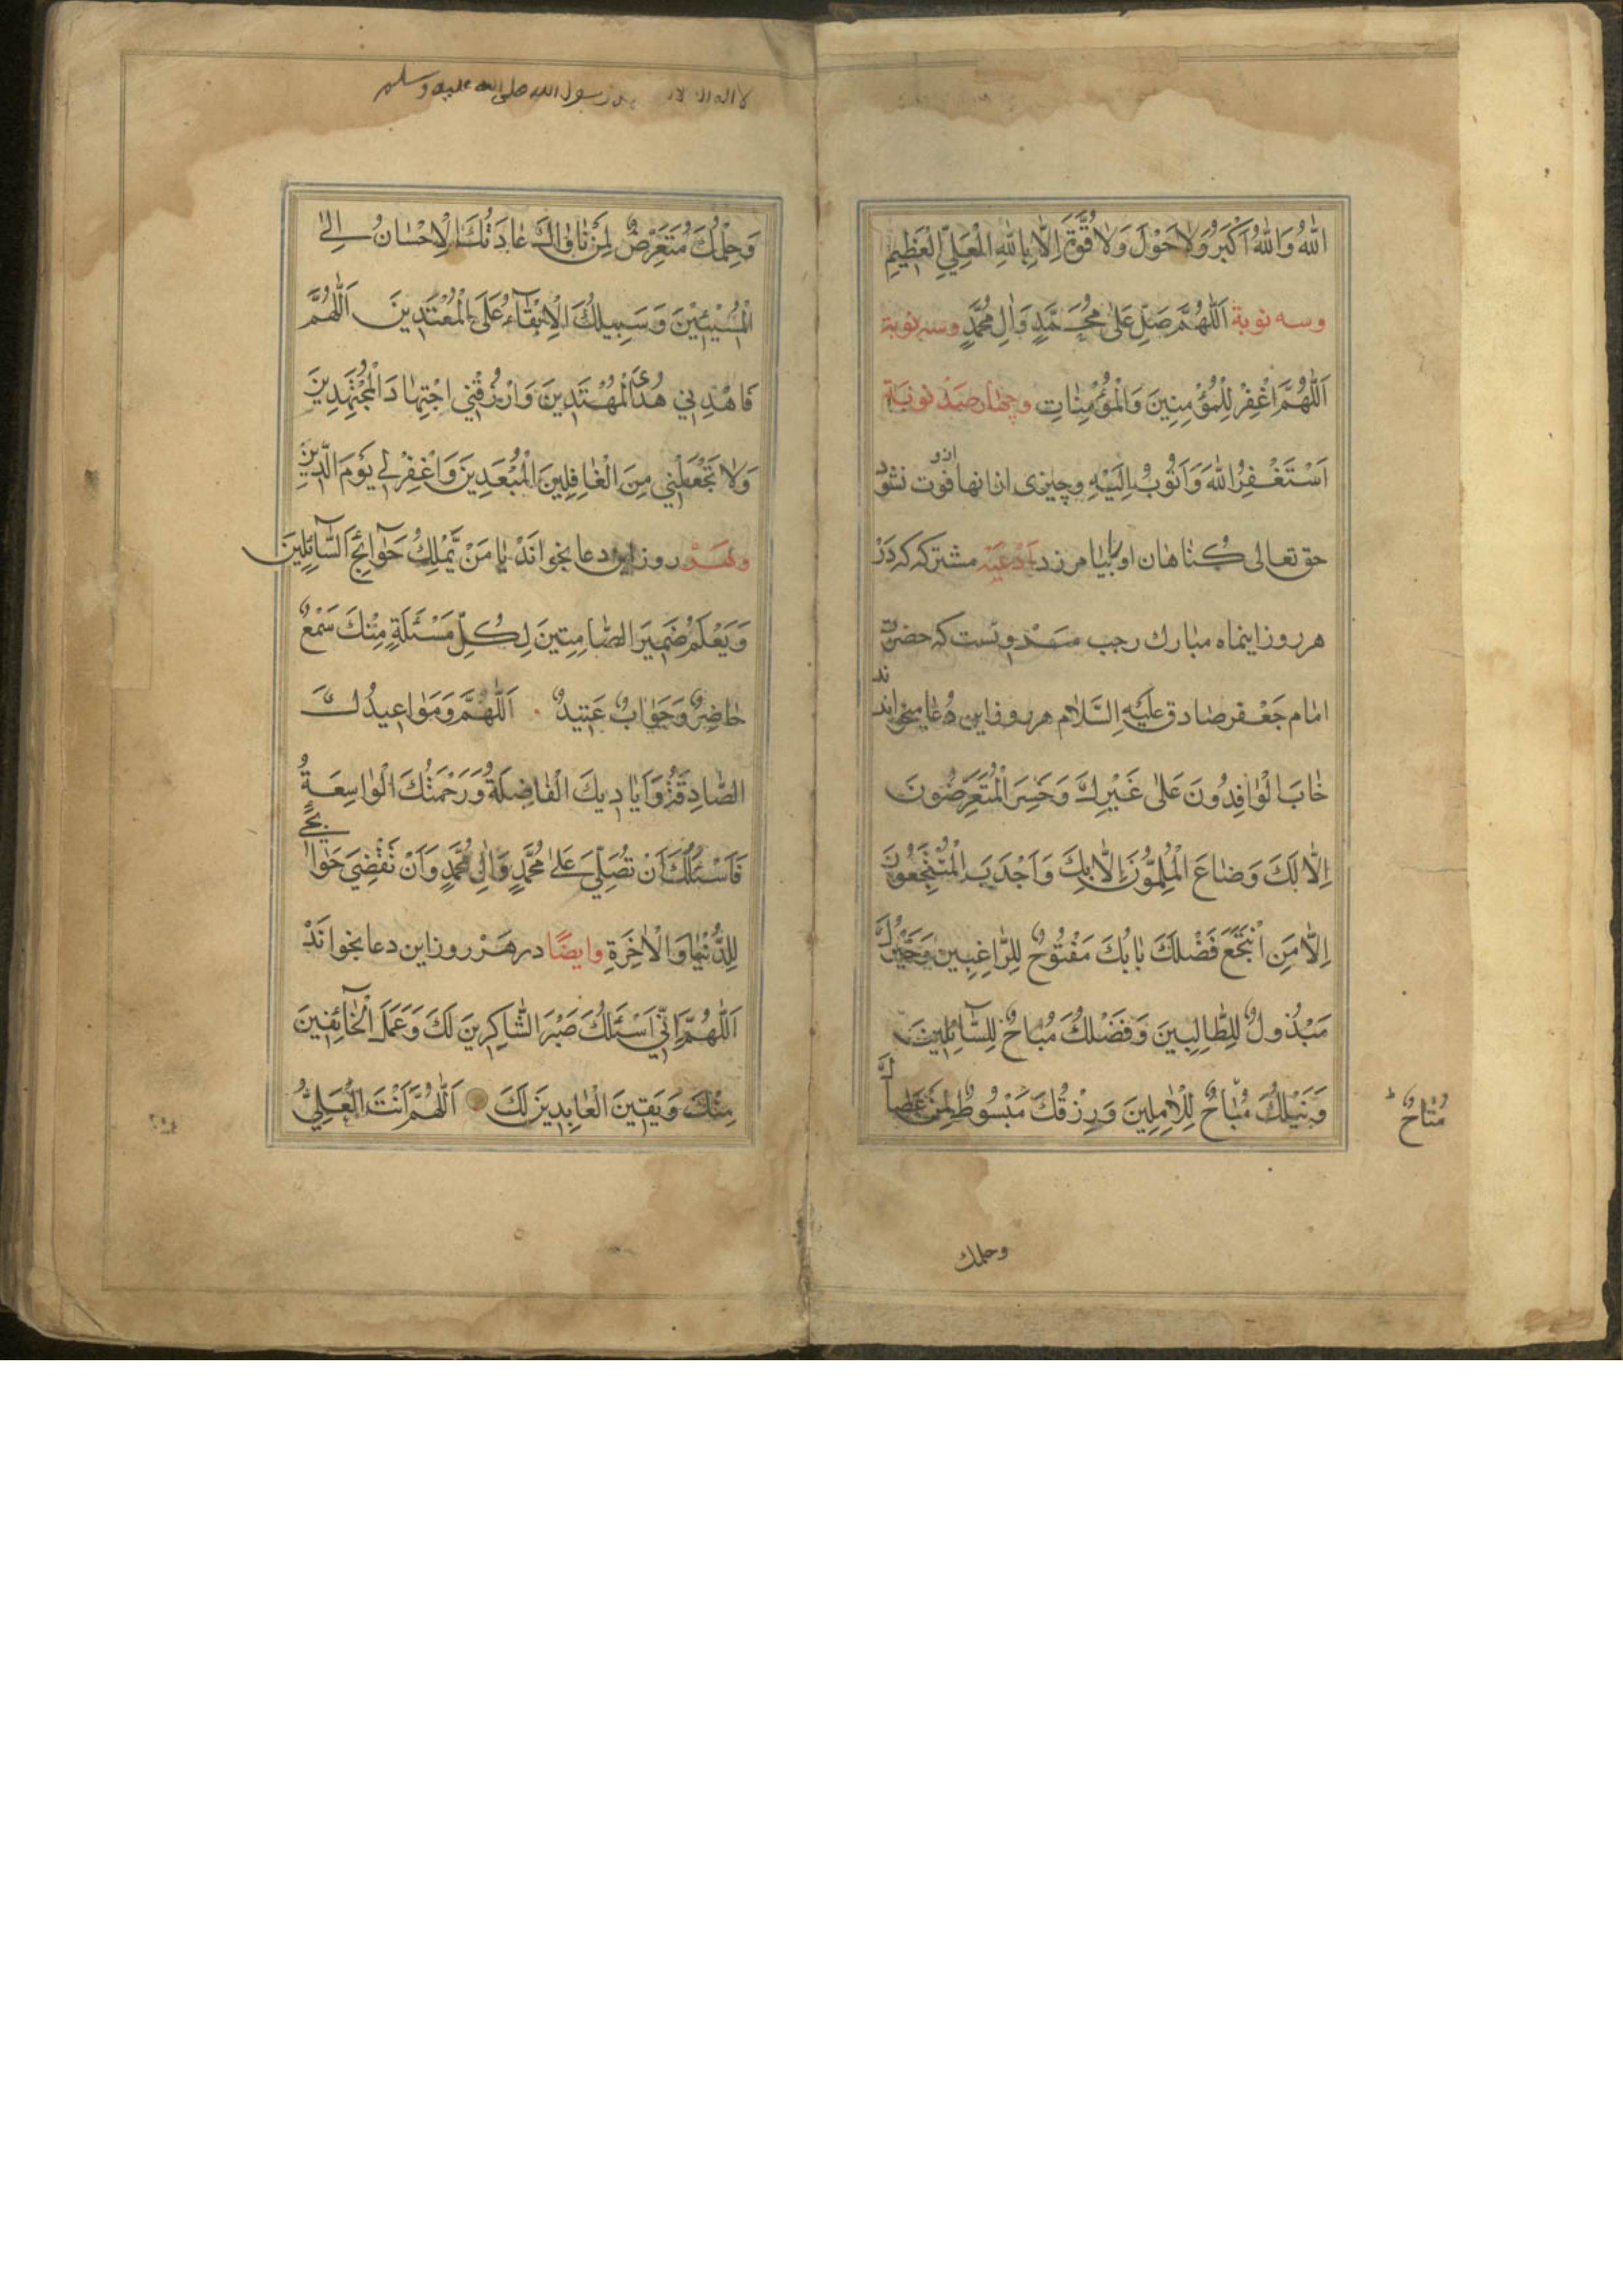 اللهُ وَاللهُ اَكْبَرُ وَلاٰحَوْلَ وَلاٰ قُوَّةَ اِلاّٰ بِاللهِ الْعَلِيِّ الْعَظِيمِ
وسه نوبة اَللّٰهُمَّ صَلِّ عَلىٰ مُحَمَّدٍ وَاٰلِ مُحَمَّدٍ وسه نوبة
اَللّٰهُمَّ اغْفِرْ لِلْمُؤْمِنِينَ وَالْمُؤْمِنٰاتِ وچهار صَدْ نوبَة
اَسْتَغْفِرُ اللهَ وَاَتُوبُ اِلَيْهِ وچيزى از انها ازو فوت نشود
حق تعالى كناهان او را بيامرزد اَدْعيَه مشتركه كه دَرْ
هر روز اينماه مبارك رجب سَنْدوبَست كه حضرت
امام جَعْفر صادق عَلَيْهِ السَّلٰام هر روز اين دُعا ميخواندند
خٰابَ الْوٰافِدُونَ عَلىٰ غَيْرِكَ وَخَسِرَ الْمُتَعَرِّضُونَ
اِلاّٰ لَكَ وَضٰاعَ الْمُلِمُّونَ اِلاّٰ بِكَ وَاَجْدَبَ الْمُنْتَجِعُونَ
اِلاّٰ مَنِ انْتَجَعَ فَضْلَكَ بٰابُكَ مَفْتُوحٌ لِلرّٰاغِبِينَ وَخَيْرُكَ
مَبْذُولٌ لِلطّٰالِبِينَ وَفَضْلُكَ مُبٰاحٌ لِلسّٰآئِلِينَ
وَنَيْلُكَ مُبٰاحٌ لِلْاٰمِلِينَ وَرِزْقُكَ مَبْسُوطٌ لِمَنْ عَصٰاكَ
مُتٰاحٌ
وحلمك
لا اله الا رسول الله صلى الله عليه وسلم
وَحِلْمُكَ مُتَعَرِّضٌ لِمَنْ نٰاوٰاكَ عٰادَتُكَ الْاِحْسٰانُ اِلَى
الْمُسيۤئِينَ وَسَبِيلُكَ الْاِبْقٰآءُ عَلَى الْمُعْتَدِينَ اَللّٰهُمَّ
فَاهْدِنِي هُدَى الْمُهْتَدِينَ وَارْزُقْنِي اجْتِهٰادَ الْمُجْتَهِدِينَ
وَلاٰ تَجْعَلْنِي مِنَ الْغٰافِلِينَ الْمُبْعَدِينَ وَاغْفِرْ لِي يَوْمَ الدِّينِ
وبهَرْ روز اين دعا بخوانَدْ يٰا مَنْ يَمْلِكُ حَوٰآئِجَ السّٰآئِلِينَ
وَيَعْلَمُ ضَمِيرَ الصّٰامِتِينَ لِكُلِّ مَسْئَلَةٍ مِنْكَ سَمْعٌ
حٰاضِرٌ وَجَوٰابٌ عَتِيدٌ اَللّٰهُمَّ وَمَوٰاعِيدُكَ
الصّٰادِقَةُ وَاَيٰادِيكَ الْفٰاضِلَةُ وَرَحْمَتُكَ الْوٰاسِعَةُ
فَاَسْئَلُكَ اَنْ تُصَلِّيَ عَلىٰ مُحَمَّدٍ وَاٰلِ مُحَمَّدٍ وَاَنْ تَقْضِيَ حَوٰائِجِي
لِلدُّنْيٰا وَالْاٰخِرَةِ وايضًا در هَرْ روز اين دعا بخوانَدْ
اَللّٰهُمَّ اِنِّي اَسْئَلُكَ صَبْرَ الشّٰاكِرِينَ لَكَ وَعَمَلَ الْخٰآئِفِينَ
مِنْكَ وَيَقِينَ الْعٰابِدِينَ لَكَ اَللّٰهُمَّ اَنْتَ الْعَلِيُّ